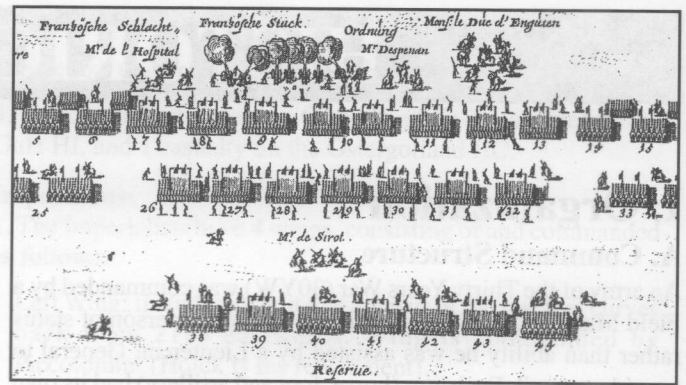 Französche Schlacht, Französche Stück. Ordnung Mons.r le Duc d'Enguien
Mr. de l'Hospital Mr. Despenan
re
5 6 7 8 9 10 11 12 13 14 15
25 26 27 28 29 30 31 32 33 34
Mr. de Sirot.
38 39 40 41 42 43 44
Reserue.